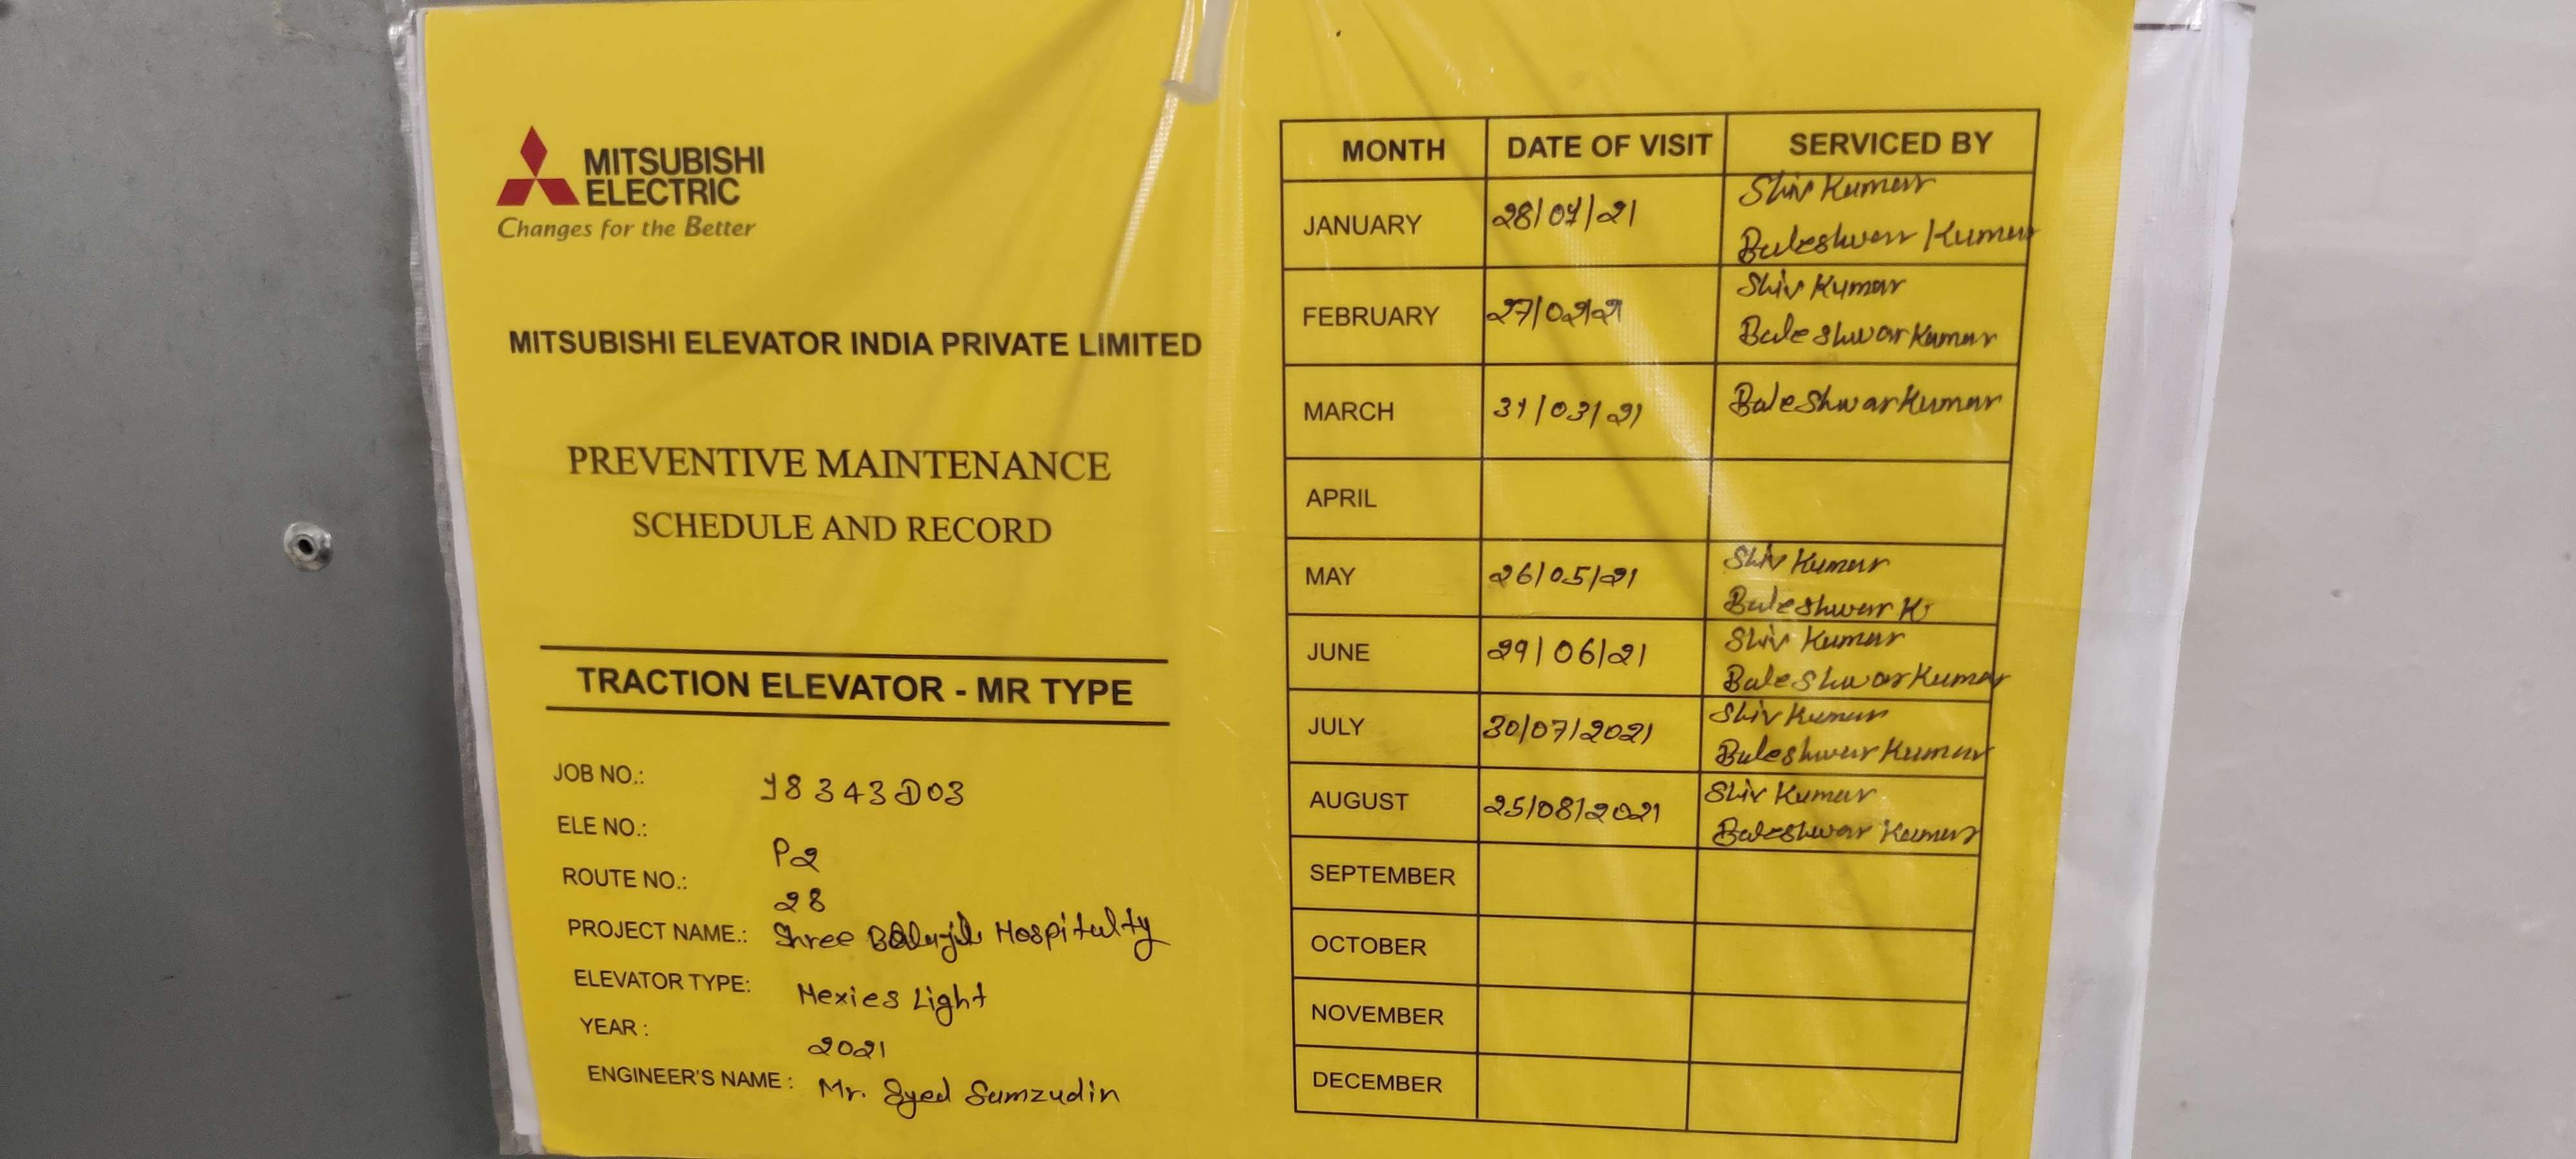 MITSUBISHI
ELECTRIC
Changes for the Better
MITSUBISHI ELEVATOR INDIA PRIVATE LIMITED
PREVENTIVE MAINTENANCE
SCHEDULE AND RECORD
TRACTION ELEVATOR - MR TYPE
JOB NO.: 18343D03
ELE NO.: P2
ROUTE NO.: 28
PROJECT NAME.: Shree Hospitality
ELEVATOR TYPE: Nexies Light
YEAR : 2021
ENGINEER'S NAME : Mr. Syed Samzudin
MONTH DATE OF VISIT SERVICED BY
JANUARY 28/01/21 Shiv Kumar
Baleshwar Kumar
FEBRUARY 27/02/21 Shiv Kumar
Baleshwar Kumar
MARCH 31/03/21 Baleshwar Kumar
APRIL
MAY 26/05/21 Shiv Kumar
Baleshwar Kr
JUNE 29/06/21 Shiv Kumar
Baleshwar Kumar
JULY 30/07/2021 Shiv Kumar
Baleshwar Kumar
AUGUST 25/08/2021 Shiv Kumar
Baleshwar Kumar
SEPTEMBER
OCTOBER
NOVEMBER
DECEMBER